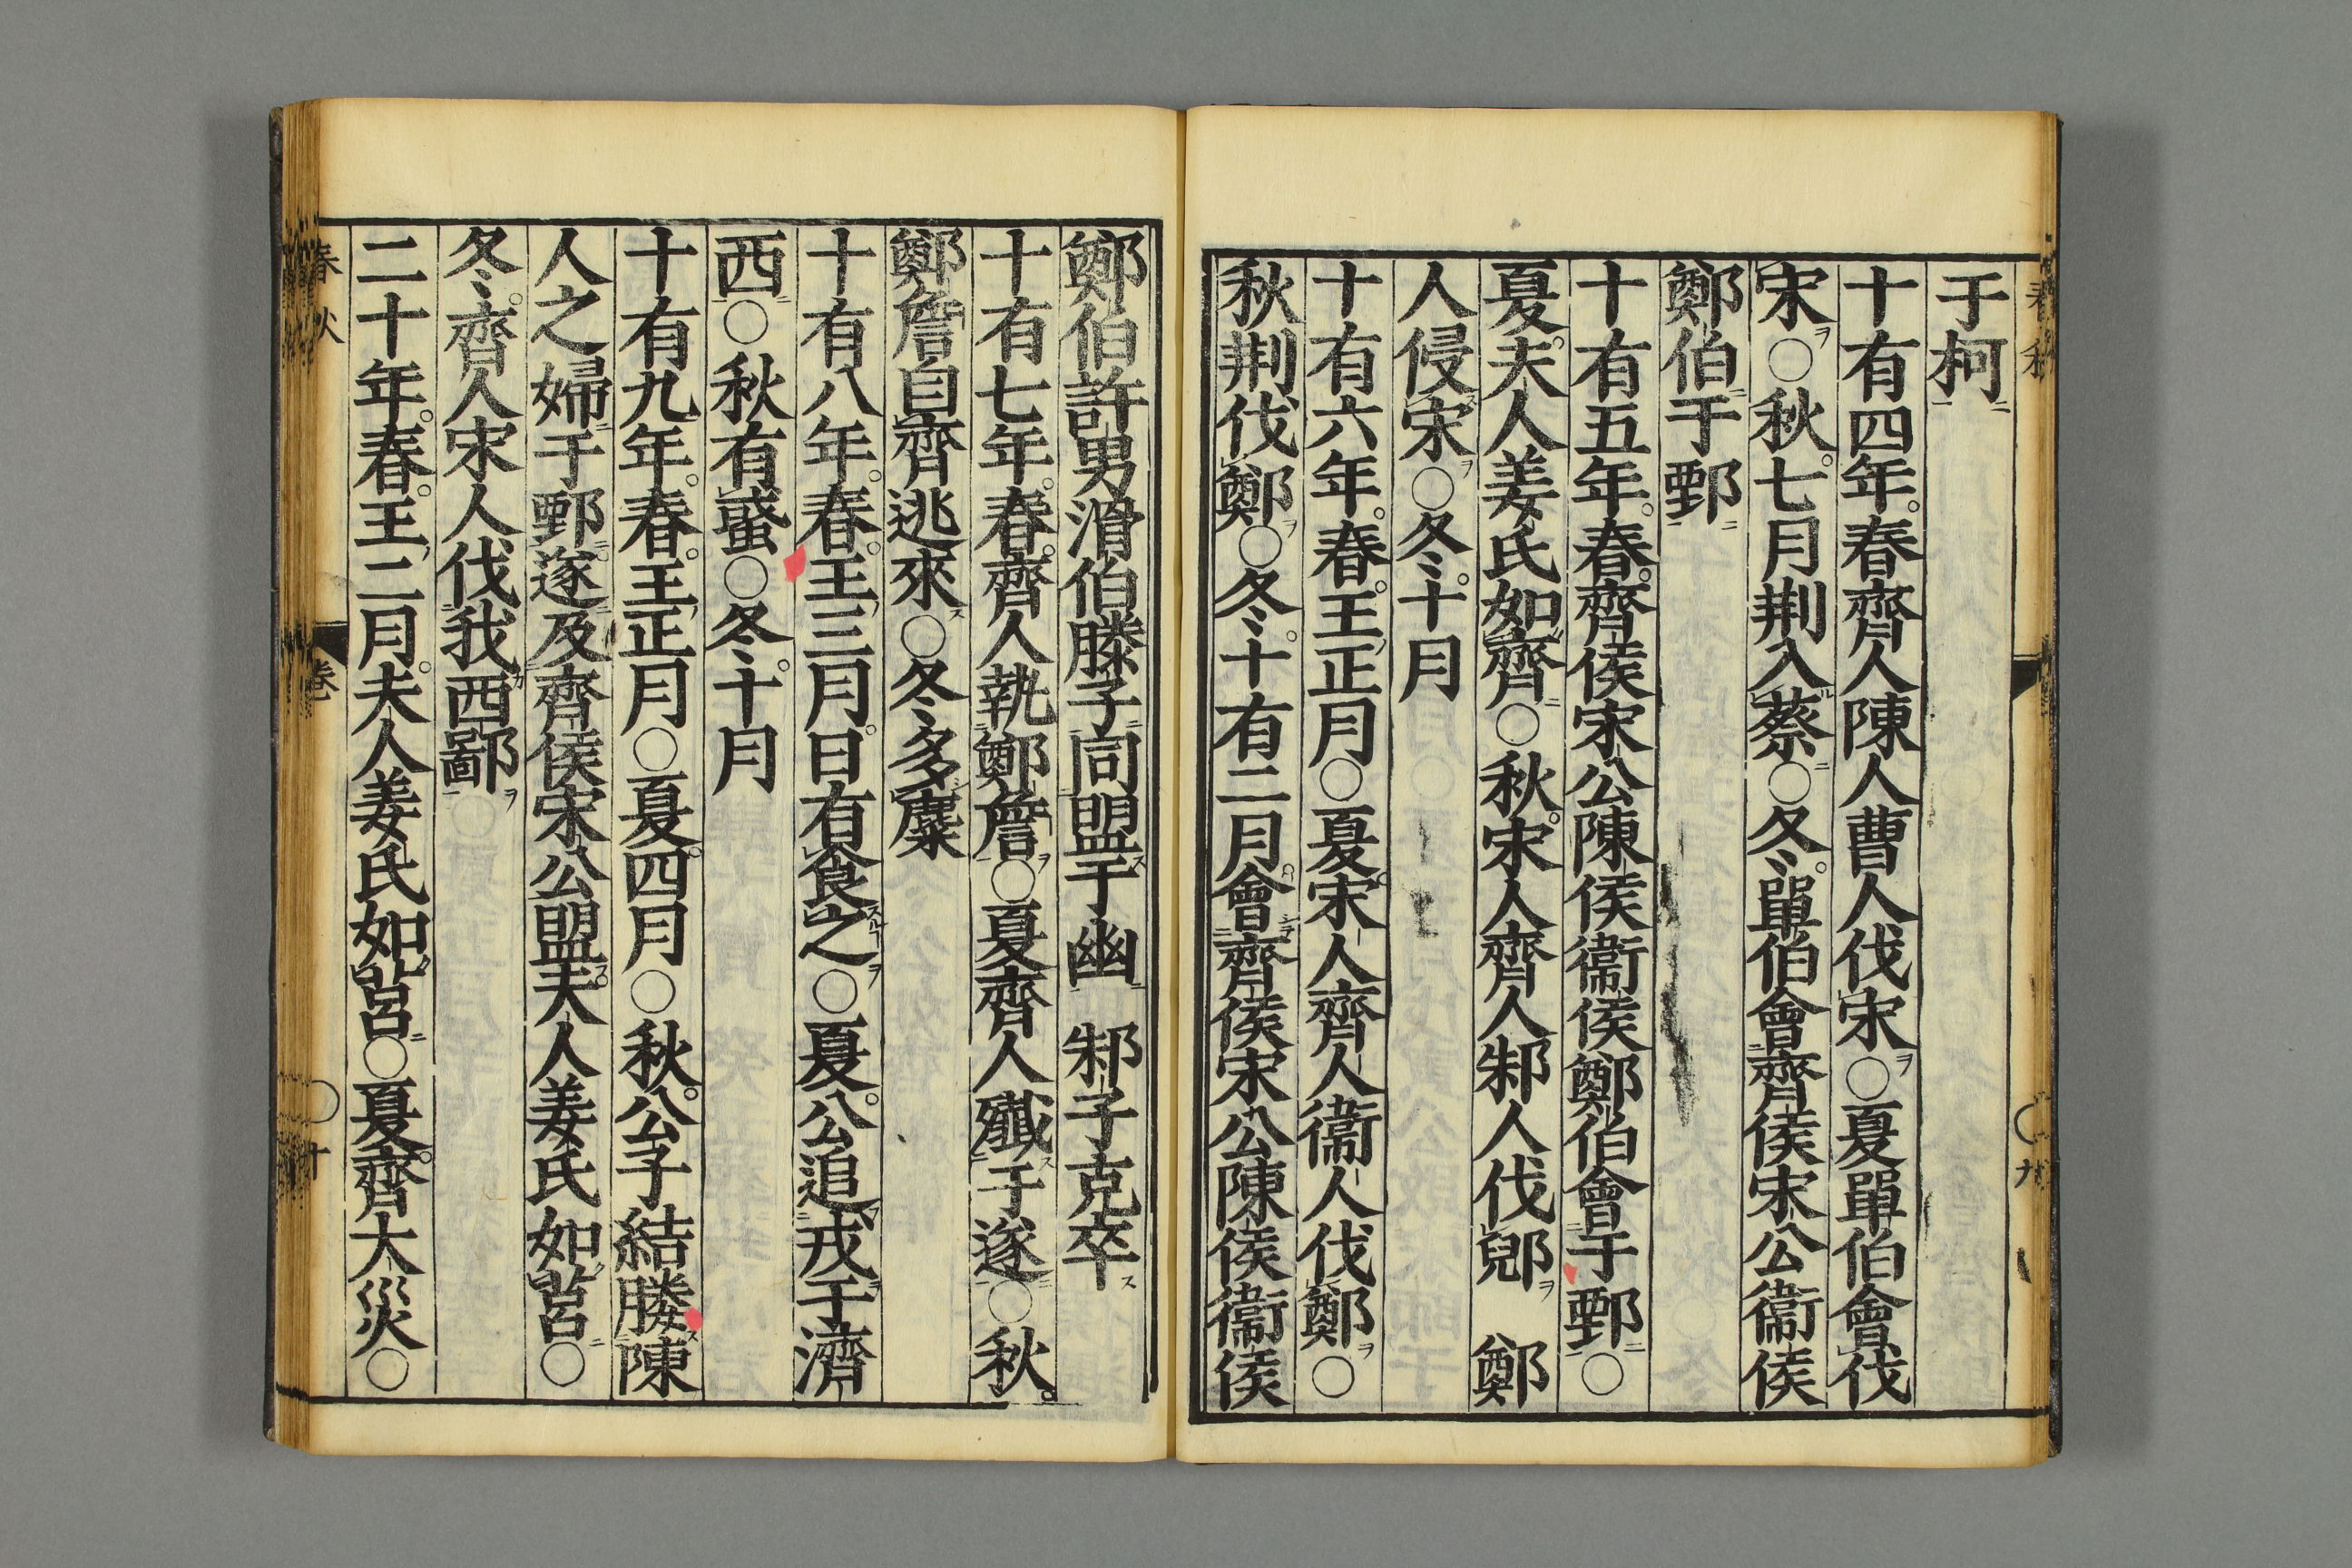 于柯
十有四年春齊人陳人曹人伐宋○夏單伯會伐
宋○秋七月荆入蔡○冬單伯會齊侯宋公衞侯
鄭伯于鄄
十有五年春齊侯宋公陳侯衞侯鄭伯會于鄄○
夏夫人姜氏如齊○秋宋人齊人邾人伐郳 鄭
人侵宋○冬十月
十有六年春王正月○夏宋人齊人衞人伐鄭○
秋荆伐鄭○冬十有二月會齊侯宋公陳侯衞侯
鄭伯許男滑伯滕子同盟于幽 邾子克卒
十有七年春齊人執鄭詹○夏齊人殲于遂○秋
鄭詹自齊逃來○冬多麋
十有八年春王三月日有食之○夏公追戎于濟
西○秋有蜮○冬十月
十有九年春王正月○夏四月○秋公子結媵陳
人之婦于鄄遂及齊侯宋公盟夫人姜氏如莒○
冬齊人宋人伐我西鄙
二十年春王二月夫人姜氏如莒○夏齊大災○
春秋 卷 ○十